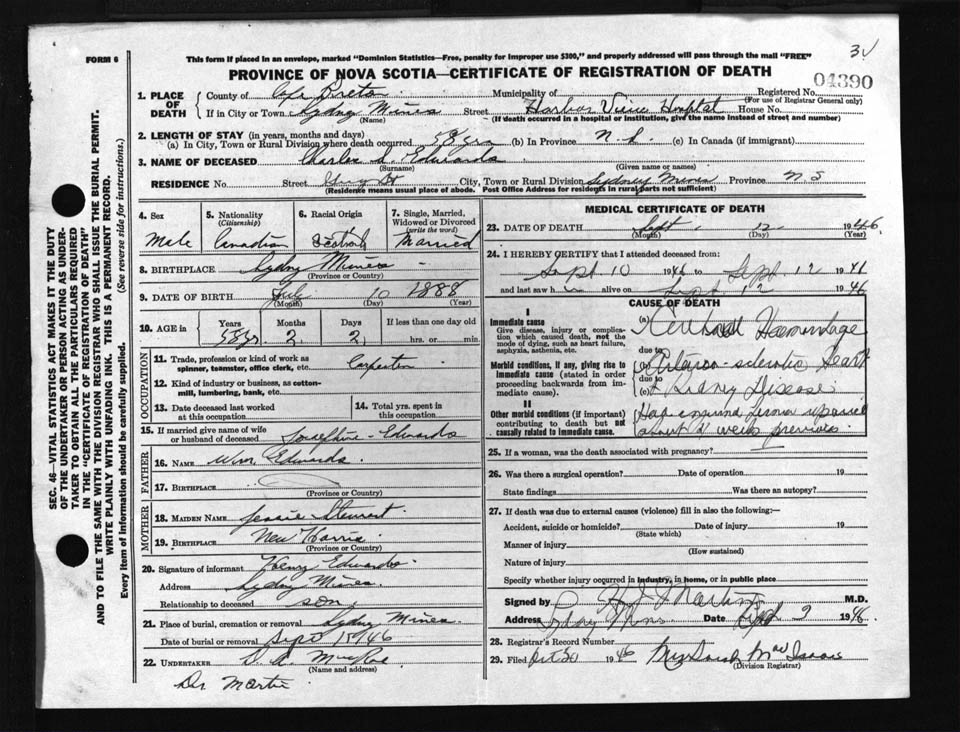 3 ✓
FORM 6
This form if placed in an envelope, marked "Dominion Statistics—Free, penalty for improper use $300," and properly addressed will pass through the mail "FREE"
PROVINCE OF NOVA SCOTIA—CERTIFICATE OF REGISTRATION OF DEATH
04390
1. PLACE OF DEATH County of Cape Breton Municipality of Registered No.
(For use of Registrar General only)
If in City or Town Sydney Mines Street Harbor View Hospital House No.
(Name) (If death occurred in a hospital or institution, give the name instead of street and number)
2. LENGTH OF STAY (in years, months and days)
(a) In City, Town or Rural Division where death occurred 58 yrs (b) In Province (c) In Canada (if immigrant)
3. NAME OF DECEASED Charles Edwards
(Surname) (Given name or names)
RESIDENCE No. Street City, Town or Rural Division Sydney Mines Province N S
(Residence means usual place of abode. Post Office Address for residents in rural parts not sufficient)
4. Sex 5. Nationality (Citizenship) 6. Racial Origin 7. Single, Married, Widowed or Divorced (write the word)
Male Canadian Scotish Married
8. BIRTHPLACE Sydney Mines
(Province or Country)
9. DATE OF BIRTH July 10 1888
(Month) (Day) (Year)
10. AGE in Years Months Days If less than one day old
58 yrs. 2. 2. hrs. or min.
OCCUPATION
11. Trade, profession or kind of work as spinner, teamster, office clerk, etc. Carpenter
12. Kind of industry or business, as cotton-mill, lumbering, bank, etc.
13. Date deceased last worked at this occupation 14. Total yrs. spent in this occupation
15. If married give name of wife or husband of deceased Josephine Edwards
FATHER
16. NAME Wm. Edwards.
17. BIRTHPLACE
(Province or Country)
MOTHER
18. MAIDEN NAME Jessie Stewart
19. BIRTHPLACE New Harris
(Province or Country)
20. Signature of informant Henry Edwards
Address Sydney Mines.
Relationship to deceased son
21. Place of burial, cremation or removal Sydney Mines.
Date of burial or removal Sept 1946
22. UNDERTAKER
(Name and address)
Dr Martin
MEDICAL CERTIFICATE OF DEATH
23. DATE OF DEATH Sept 12 1946
(Month) (Day) (Year)
24. I HEREBY CERTIFY that I attended deceased from:
Sept 10 1946 to Sept. 12 1946
and last saw h alive on Sept 12 1946
CAUSE OF DEATH
I
Immediate cause
Give disease, injury or complication which caused death, not the mode of dying, such as heart failure, asphyxia, asthenia, etc.
(a) Cerebral Haemorrhage
due to
Morbid conditions, if any, giving rise to immediate cause (stated in order proceeding backwards from immediate cause).
(b) Arterio-sclerotic Heart
due to
(c) & Kidney Disease.
II
Other morbid conditions (if important) contributing to death but not causally related to immediate cause.
Had
about weeks previous.
25. If a woman, was the death associated with pregnancy?
26. Was there a surgical operation? Date of operation 19
State findings Was there an autopsy?
27. If death was due to external causes (violence) fill in also the following:—
Accident, suicide or homicide? Date of injury 19
(State which)
Manner of injury
(How sustained)
Nature of injury
Specify whether injury occurred in industry, in home, or in public place
Signed by Martin M.D.
Address Sydney Mines Date Sept 1946
28. Registrar's Record Number
29. Filed Oct 30 1946 Mrs Sarah MacIsaac
(Division Registrar)
SEC. 46—VITAL STATISTICS ACT MAKES IT THE DUTY
OF THE UNDERTAKER OR PERSON ACTING AS UNDER-
TAKER TO OBTAIN ALL THE PARTICULARS REQUIRED
IN THE "CERTIFICATE OF REGISTRATION OF DEATH"
AND TO FILE THE SAME WITH THE DIVISION REGISTRAR WHO SHALL ISSUE THE BURIAL PERMIT.
WRITE PLAINLY WITH UNFADING INK. THIS IS A PERMANENT RECORD.
Every item of Information should be carefully supplied. (See reverse side for instructions.)